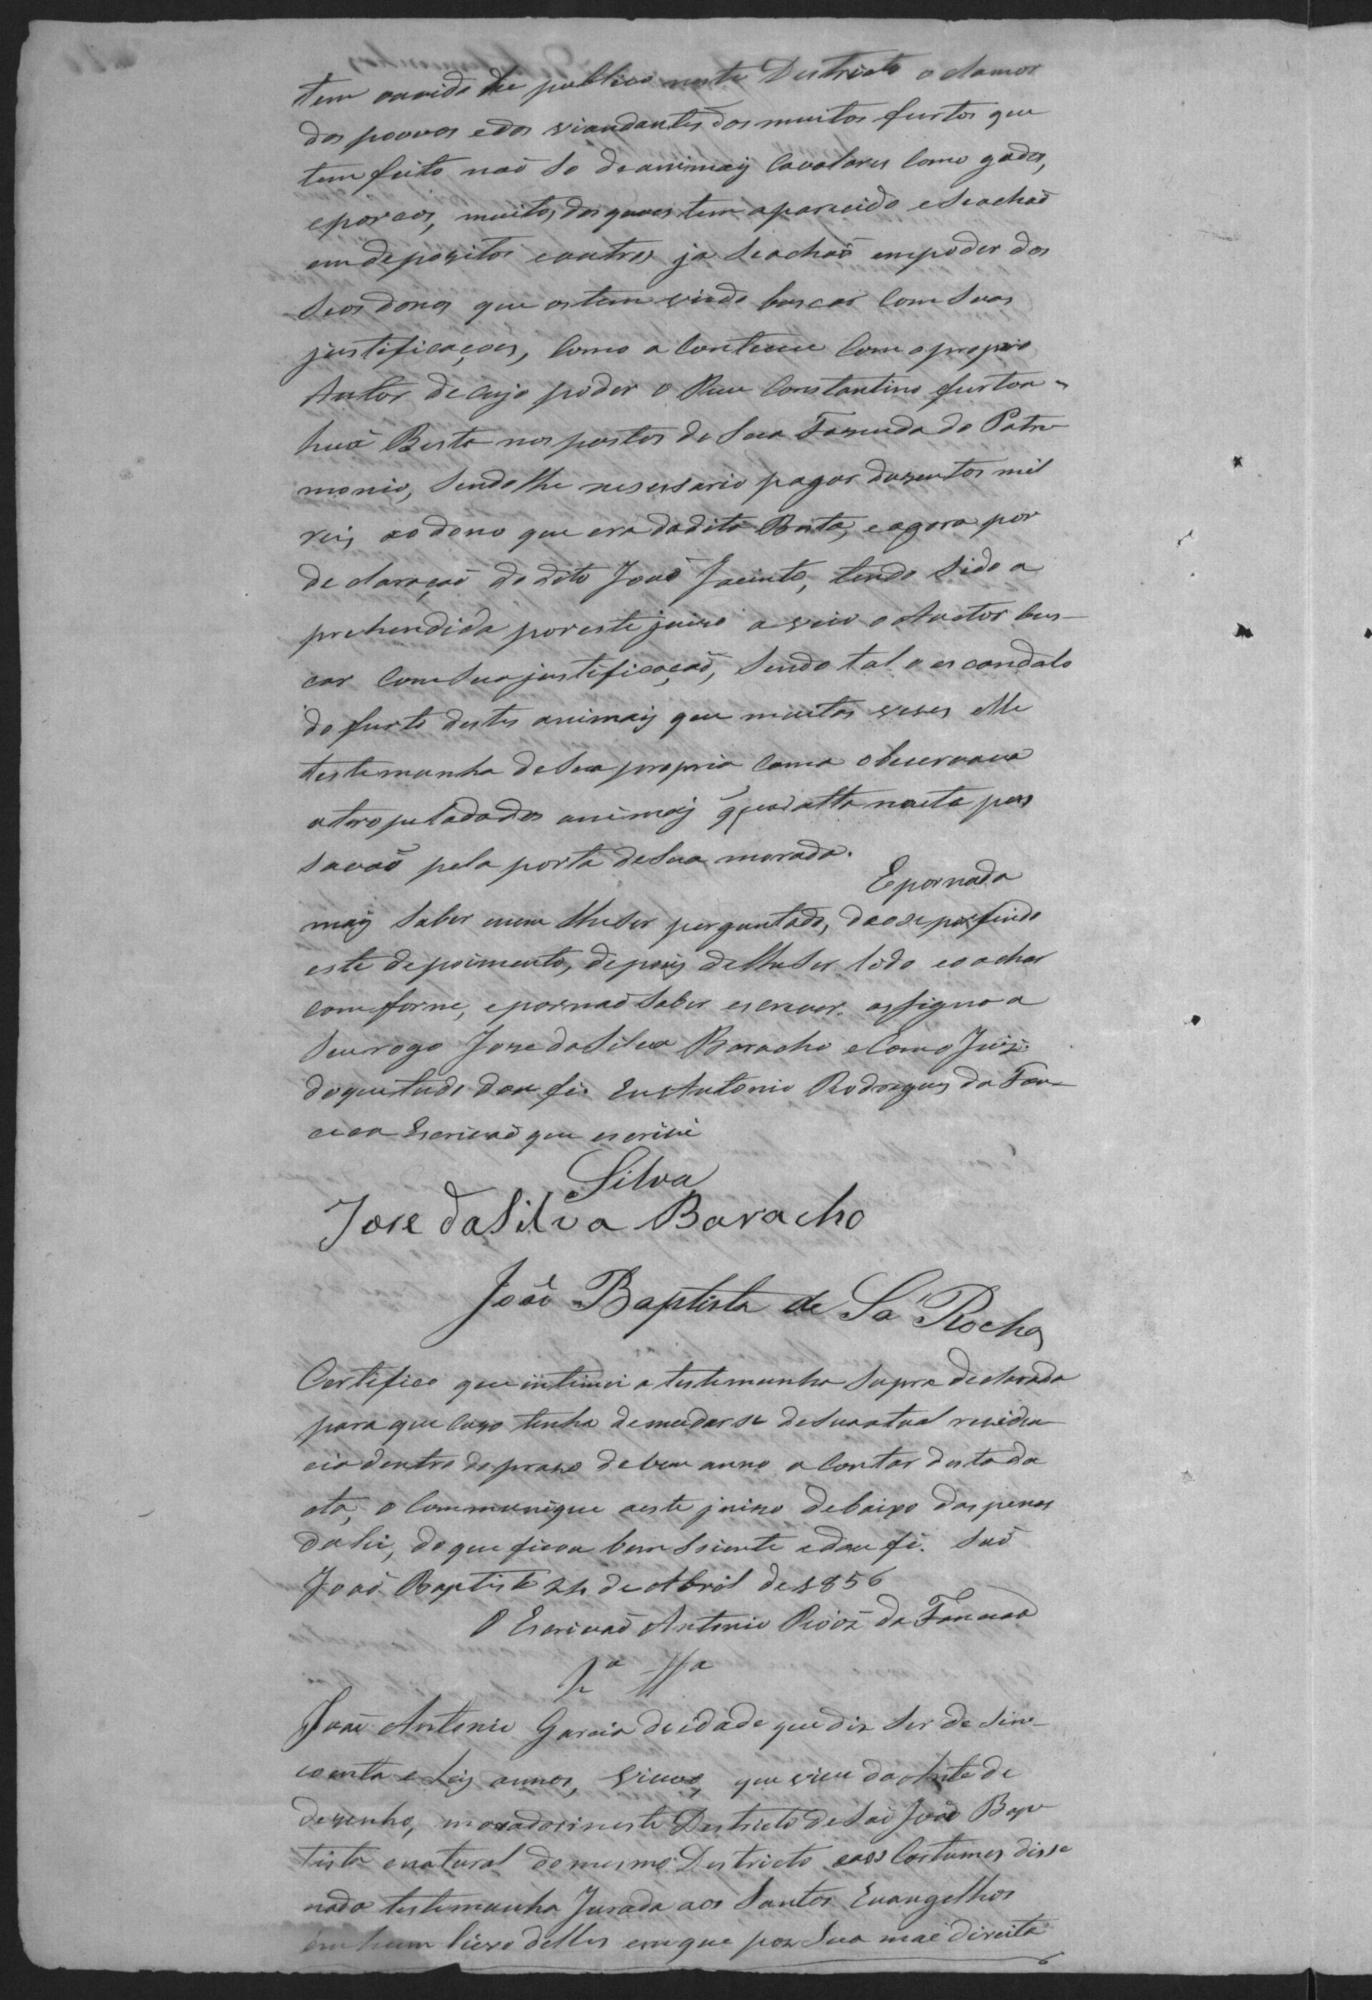 tem ouvido de publico neste Destricto o clamor
dos povos e dos viandantes dos muitos furtos que
tem feito naõ so de animaiz Cavalares como gados,
e porcos, muitos dos quaes tem aparecido e se achaõ
em depozitos e outros ja se achaõ em poder dos
Seos donos que os tem vindo buscar Com Suas
justificaçoes, Como a Conteceu Com o proprio
Autor de cujo poder o Reu Constantino furtou
hua Besta nos pastos de Sua Fazenda do Patri
monio, Sendo lhe nesessario pagar duzentos mil
reis ao dono que era da dita Besta, e agora por
de claraçaõ do dito Joaõ Jacinto, tendo Sido a
prehendida por este juizo a veio o Auctor bus-
car Com Sua justificaçaõ, Sendo tal o escandalo
do furto destes animaiz que muitas veses elle
testemunha de Sua propria Cama observava
a tropelada dos animaiz que alta noite pas
savaõ pela porta de Sua morada.
E por nada
maiz Saber nem lhe Ser perguntado, deo se por findo
este depoimento, depoiz de lhe Ser lido e o achar
comforme, e por naõ Saber escrever assigna a
Seu rogo Jose da Silva Baracho e Como Juiz
do que tudo dou fé. Eu Antonio Rodrigues da Fon
ceca Escrivaõ que escrivi
Silva
Jose da Silva Baracho
João Baptista de Sá Rocha
Certifico que intimei a testemunha Supra declarada
para que Cazo tenha de mudar se de Sua atual residen
cia dentro do prazo de hum anno a Contar desta da
ata, o Communique a este juizo debaixo das penas
da lei, do que ficou bem Sciente e dou fé. Saõ
Joaõ Baptista 24 de Abril de 1856
O Escrivaõ Antonio Roiz da Fonceca
2ª Tª
Joaõ Antonio Garcia de idade que diz Ser de Sin-
coenta e Seis annos, viuvo, que vive da Arte de
dezenho, morador neste Destricto de Saõ Joaõ Bap
tista e natural do mesmo Destricto e aos Costumes disse
nada testemunha Jurada aos Santos Evangelhos
em hum livro delles em que poz Sua maõ direita